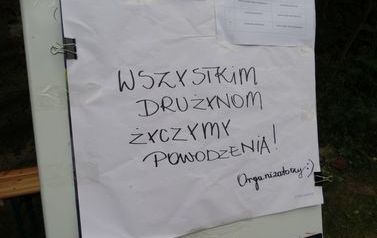 WSZYSTKIM
DRUŻYNOM
ŻYCZYMY
POWODZENIA!
Organizatorzy :)